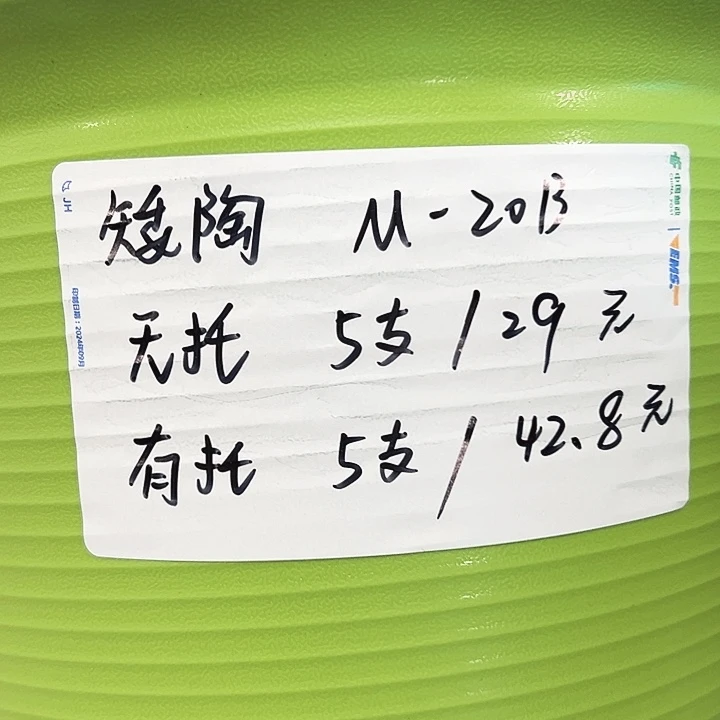 矮陶 M-20B
无托 5支/29元
有托 5支/42.8元
中国邮政
CHINA POST
EMS
JH
印制日期：2024年09月